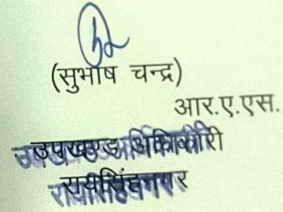 (सुभाष चन्द्र)
आर.ए.एस.
उपखण्ड अधिकारी
रायसिंहनगर